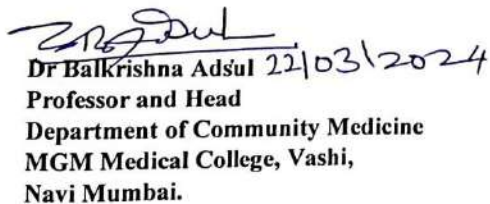 Dr Balkrishna Adsul 22/03/2024
Professor and Head
Department of Community Medicine
MGM Medical College, Vashi,
Navi Mumbai.